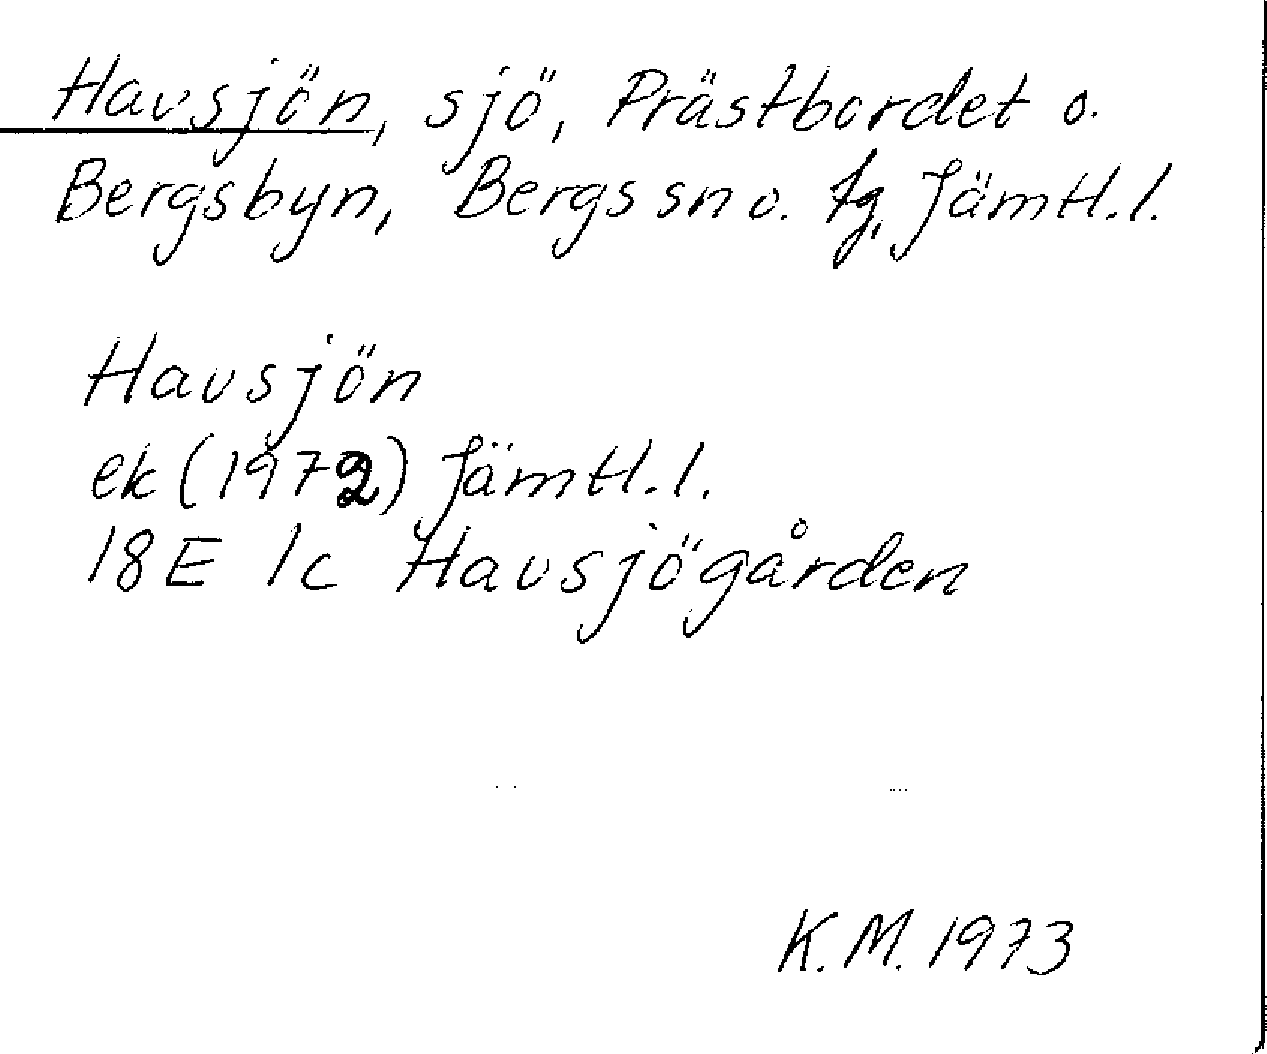 Havsjön, sjö, Prästbordet o.
Bergsbyn, Bergs sn o. tg, Jämtl. l.
Havsjön
ek (1972) Jämtl. l.
18E 1c Havsjögården
K.M. 1973